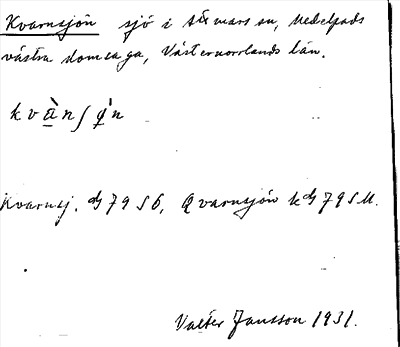 Kvarnsjön sjö i Stömars sn, Medelpads
västra domsaga, Västernorrlands län.
kvà̱nʃǫ́n
Kvarnsj. dG 79 S6, Qvarnsjön kdG 79 SU.
Valter Jansson 1931.